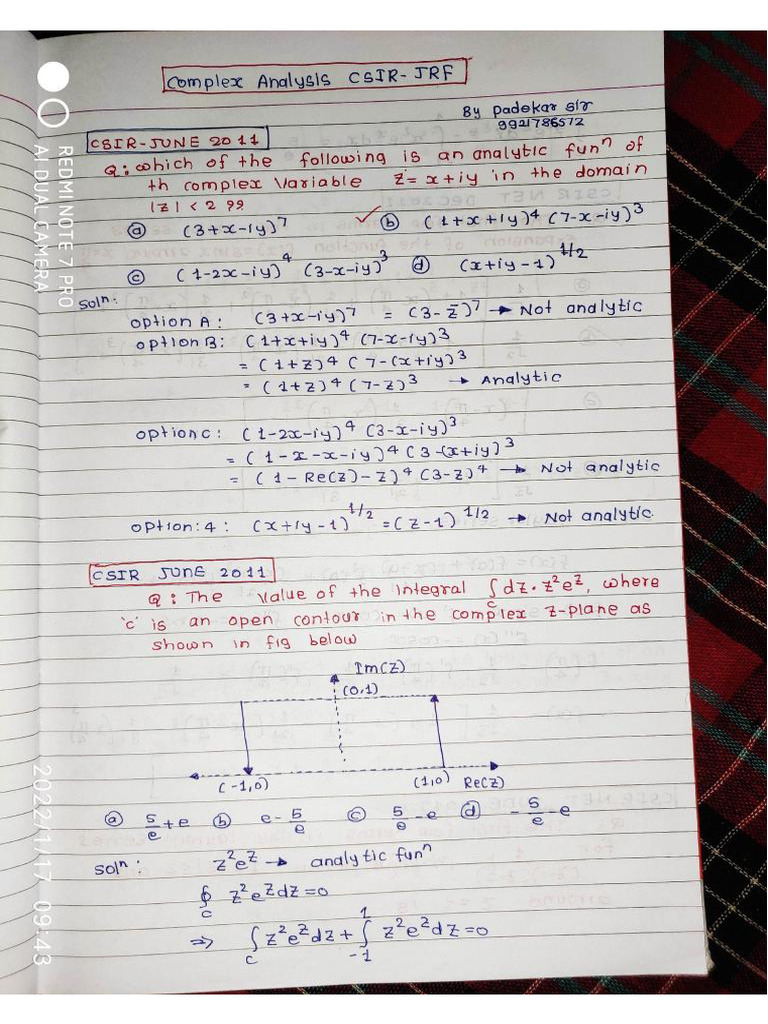 Complex Analysis CSIR-JRF
By Padekar sir
9921786572
CSIR-JUNE 2011
Q: which of the following is an analytic funⁿ of
th complex Variable z=x+iy in the domain
|z|<2 ??
ⓐ (3+x-iy)⁷ ✓ⓑ (1+x+iy)⁴ (7-x-iy)³
ⓒ (1-2x-iy)⁴ (3-x-iy)³ ⓓ (x+iy-1)^1/2
Solⁿ:
option A: (3+x-iy)⁷ = (3-z̄)⁷ → Not analytic
option B: (1+x+iy)⁴ (7-x-iy)³
= (1+z)⁴ (7-(x+iy)³
= (1+z)⁴ (7-z)³ → Analytic
option c: (1-2x-iy)⁴ (3-x-iy)³
= (1-x-x-iy)⁴ (3-(x+iy)³
= (1-Re(z)-z)⁴ (3-z)⁴ → Not analytic
option:4: (x+iy-1)^1/2 = (z-1)^1/2 → Not analytic.
CSIR JUNE 2011
Q: The value of the integral ∫_c dz·z²e^z, where
'c' is an open contour in the complex z-plane as
shown in fig below
Im(z)
(0,1)
(-1,0) (1,0) Re(z)
ⓐ 5/e+e ⓑ e-5/e ⓒ 5/e-e ⓓ -5/e-e
Solⁿ: z²e^z → analytic funⁿ
∮_c z²e^z dz=0
⇒ ∫_c z²e^z dz + ∫_-1^1 z²e^z dz=0
REDMI NOTE 7 PRO
AI DUAL CAMERA
2022/1/17 09:43